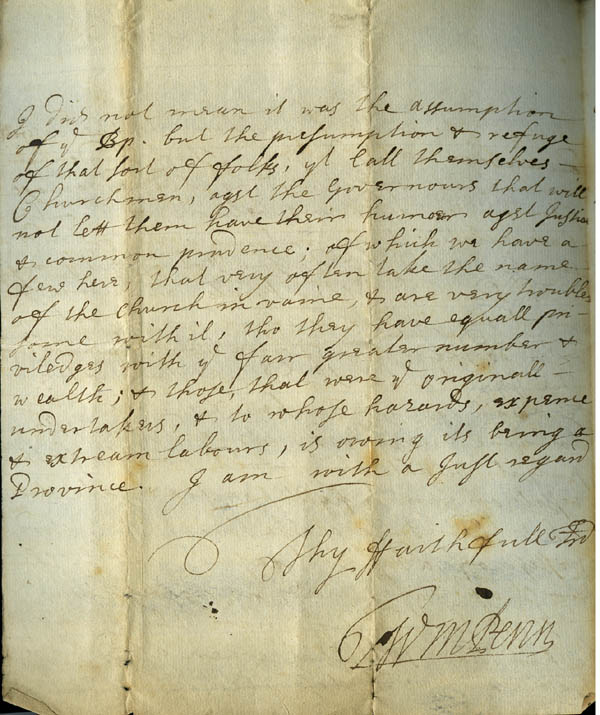 I did not mean it was the assumption
of ye Bp. but the presumption & refuge
of that sort of folks, yt call themselves
Churchmen, agst the Governours that will
not lett them have their humour agst Justice
& common prudence; of which we have a
few here, that very often take the name
of the Church in vaine, & are very trouble
some with it, tho they have equall pri-
viledges with ye farr greater number &
wealth; & those, that were ye originall
undertakers, & to whose hazards, expence
& extream labours, is owing its being a
Province. I am with a Just regard
Thy ffaithfull Frd
Wm Penn